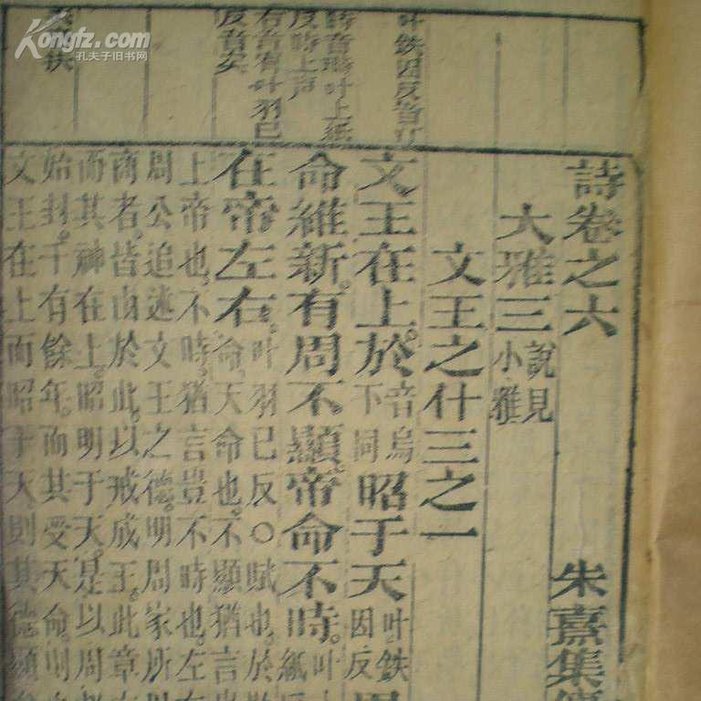 Kongfz.com
孔夫子旧书网
叶鉄因反音
時音時叶上紙
反時上声
右音有叶羽已
反音矣
詩卷之六
朱熹集傳
大雅三
說見
小雅
文王之什三之一
文王在上於
音烏
下同
昭于天
叶鉄
因反
周
命維新有周不顯帝命不時
叶上
紙反
在帝左右
叶羽已反○賦也於
命天命也不顯猶言
上帝也不時猶言豈不時也左右
周公追述文王之德明周家所
商者皆由於此以戒成王此章言
而其神在上昭明于天是以周
始封千有餘年而其受天命則
文王在上而昭于天則其德顯